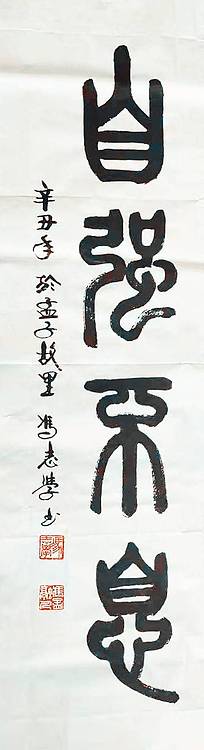 自强不息
辛丑年 於孟子故里 冯志学书